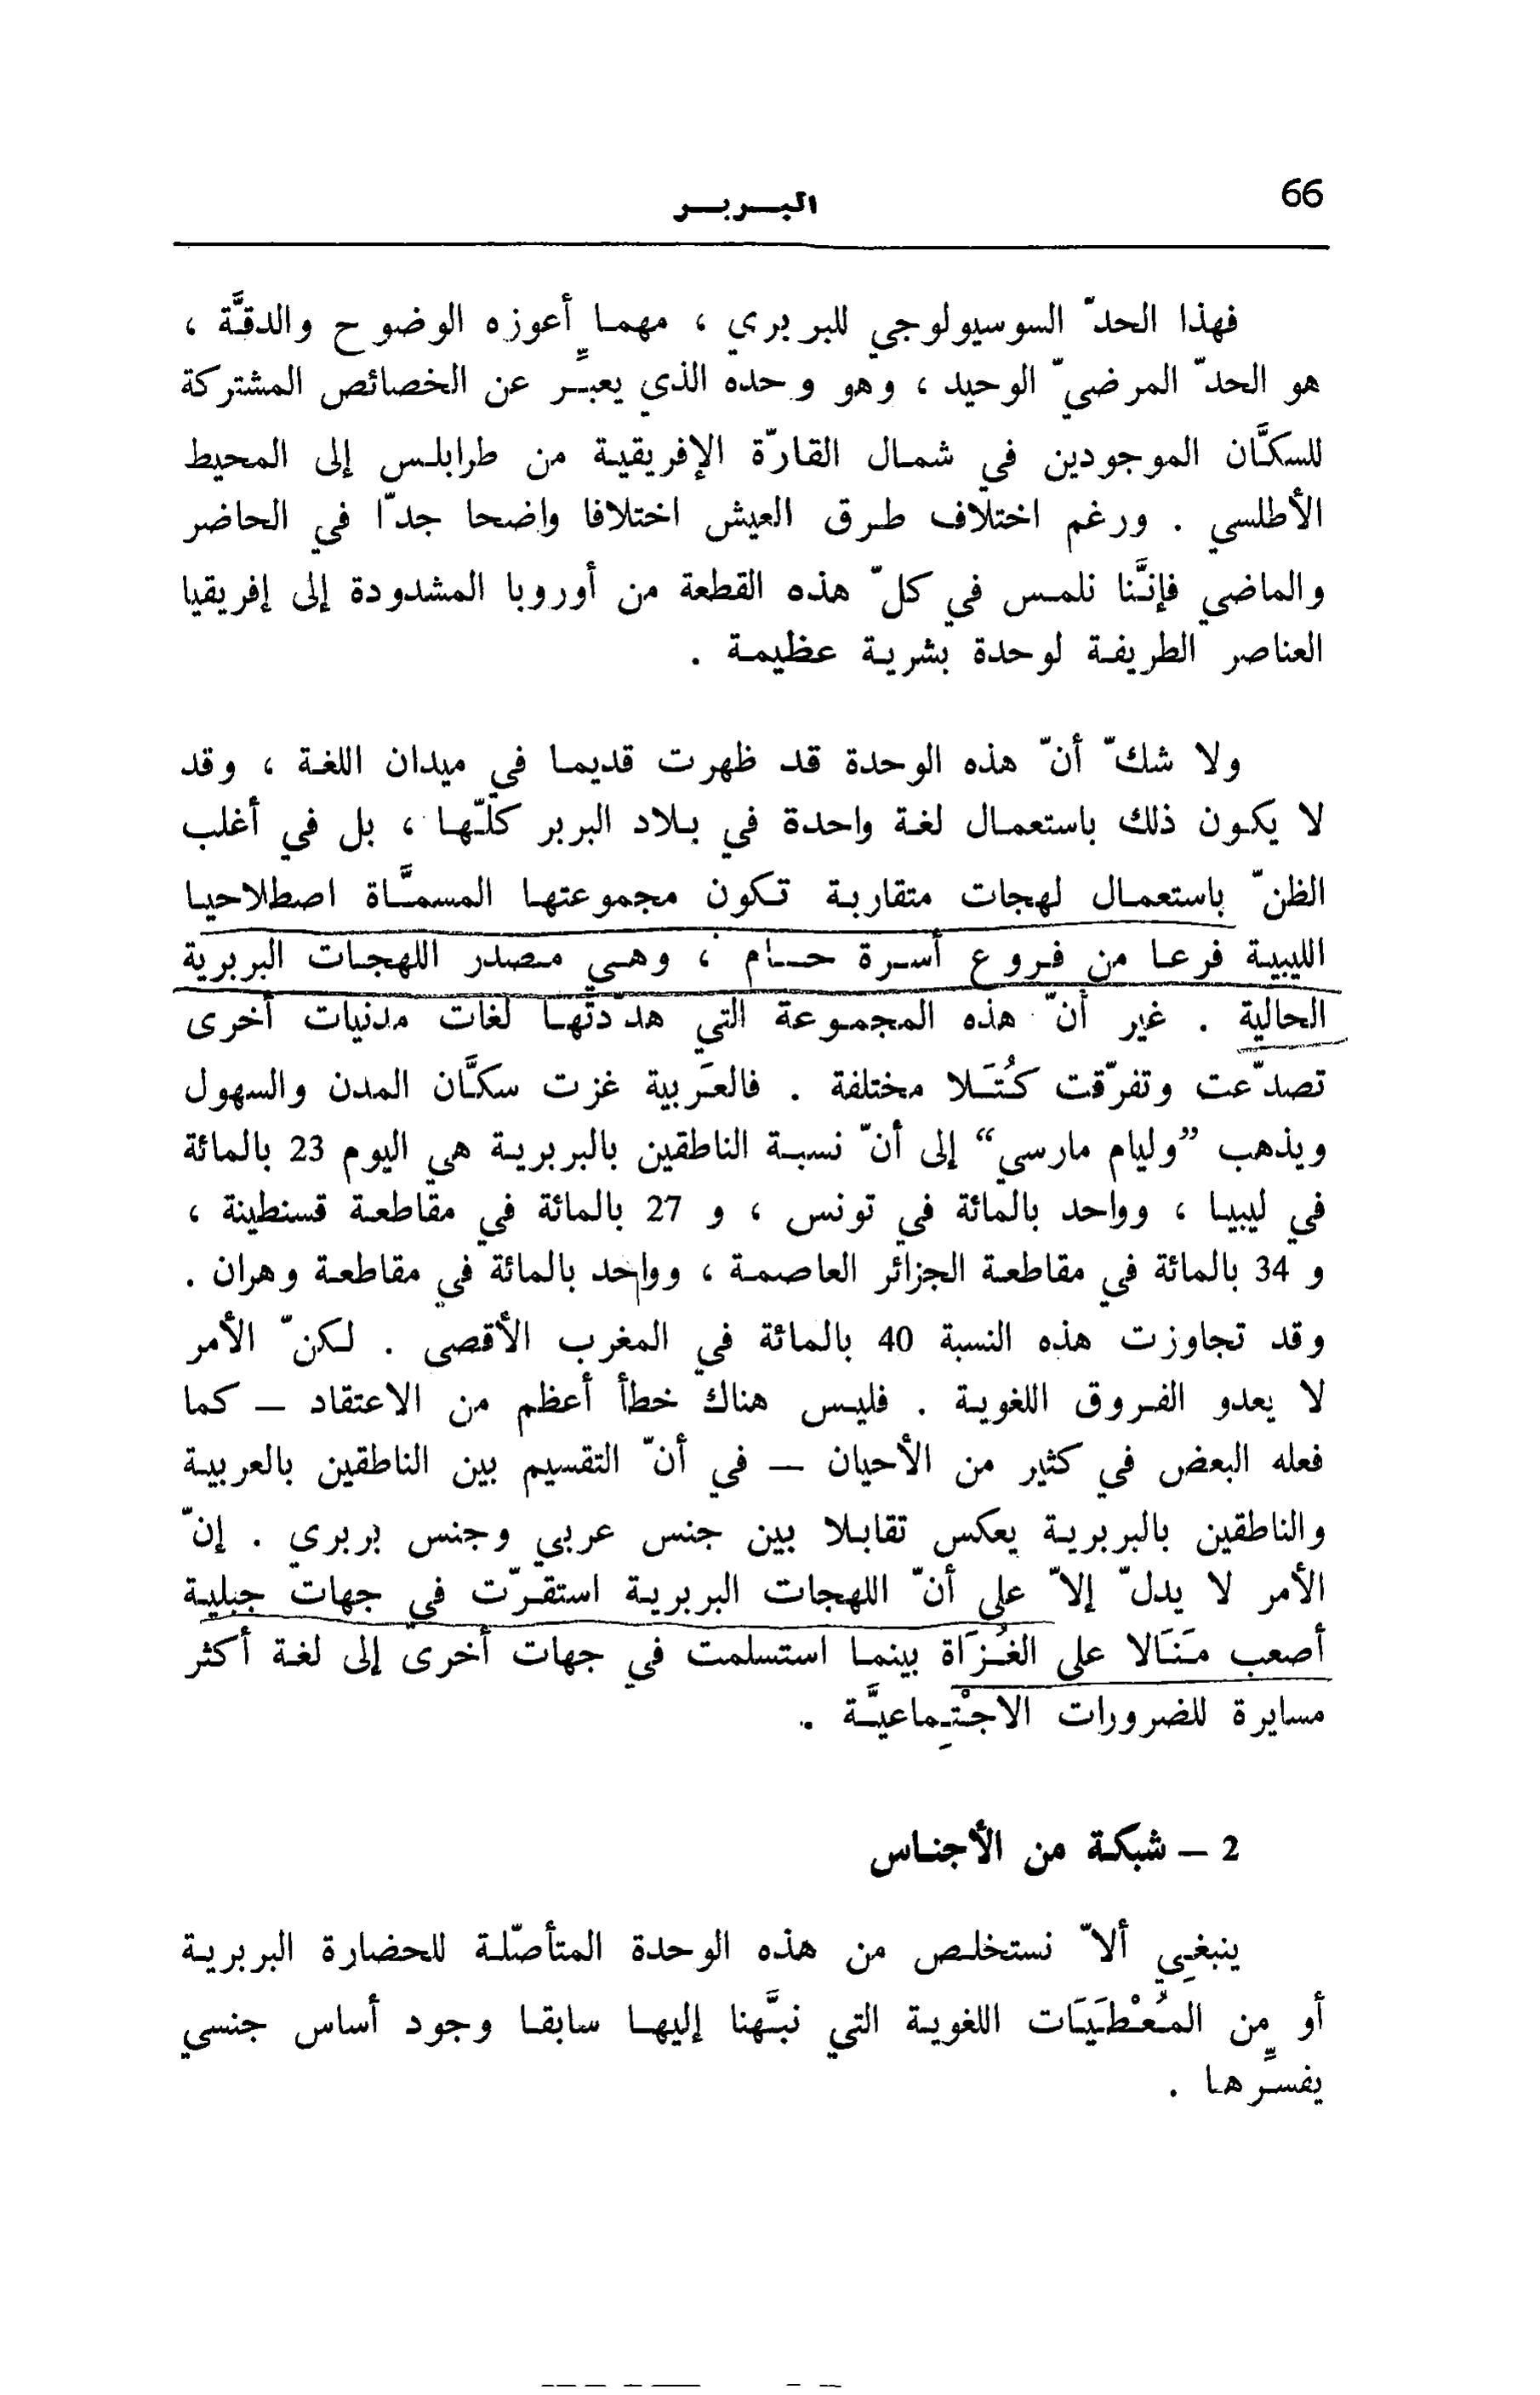 66
البـــربـــر
فهذا الحدّ السوسيولوجي للبربري ، مهمـا أعوزه الوضوح والدقَّة ،
هو الحدّ المرضيّ الوحيد ، وهو وحده الذي يعبِّـر عن الخصائص المشتركة
للسكَّان الموجودين في شمـال القارّة الإفريقيـة من طرابلـس إلى المحيط
الأطلسي . ورغم اختلاف طـرق العيش اختلافا واضحا جدّا في الحاضر
والماضي فإنَّنا نلمـس في كلّ هذه القطعة من أوروبا المشدودة إلى إفريقيا
العناصر الطريفـة لوحدة بشريـة عظيمـة .
ولا شكّ أنّ هذه الوحدة قد ظهرت قديمـا في ميدان اللغـة ، وقد
لا يكـون ذلك باستعمـال لغـة واحدة في بـلاد البربر كلّـها ، بل في أغلب
الظنّ باستعمـال لهجات متقاربـة تـكون مجموعتهـا المسمَّـاة اصطلاحيـا
الليبيـة فرعـا من فـروع أسـرة حـــام ، وهـي مـصدر اللهجـات البربرية
الحالية . غير أنّ هذه المجمـوعة التي هدّدتهـا لغات مدنيات أخرى
تصدّعت وتفرّقت كُتَـلا مختلفة . فالعَربية غزت سكَّان المدن والسهول
ويذهب ”وليام مارسي“ إلى أنّ نسبـة الناطقين بالبربريـة هي اليوم 23 بالمائة
في ليبيـا ، وواحد بالمائة في تونس ، و 27 بالمائة في مقاطعـة قسنطينة ،
و 34 بالمائة في مقاطعة الجزائر العاصمـة ، وواحد بالمائة في مقاطعـة وهران .
وقد تجاوزت هذه النسبة 40 بالمائة في المغرب الأقصى . لـكنّ الأمر
لا يعدو الفـروق اللغويـة . فليـس هناك خطأ أعظم من الاعتقاد — كما
فعله البعض في كثير من الأحيان — في أنّ التقسيم بين الناطقين بالعربيـة
والناطقين بالبربريـة يعكس تقابـلا بين جنس عربي وجنس بربري . إنّ
الأمر لا يدلّ إلاّ على أنّ اللهجات البربريـة استقـرّت في جهات جبليـة
أصعب مَـنَـالا على الغُـزَاة بينمـا استسلمت في جهات أخرى إلى لغـة أكثر
مسايرة للضرورات الاجْتِـماعيَّـة .
2 — شبكـة من الأجنـاس
ينبغـي ألاّ نستخلـص من هذه الوحدة المتأصّلـة للحضارة البربريـة
أو من المُـعْـطَـيَـات اللغويـة التي نبَّهنا إليهـا سابقـا وجود أساس جنسي
يفسـِّرهـا .